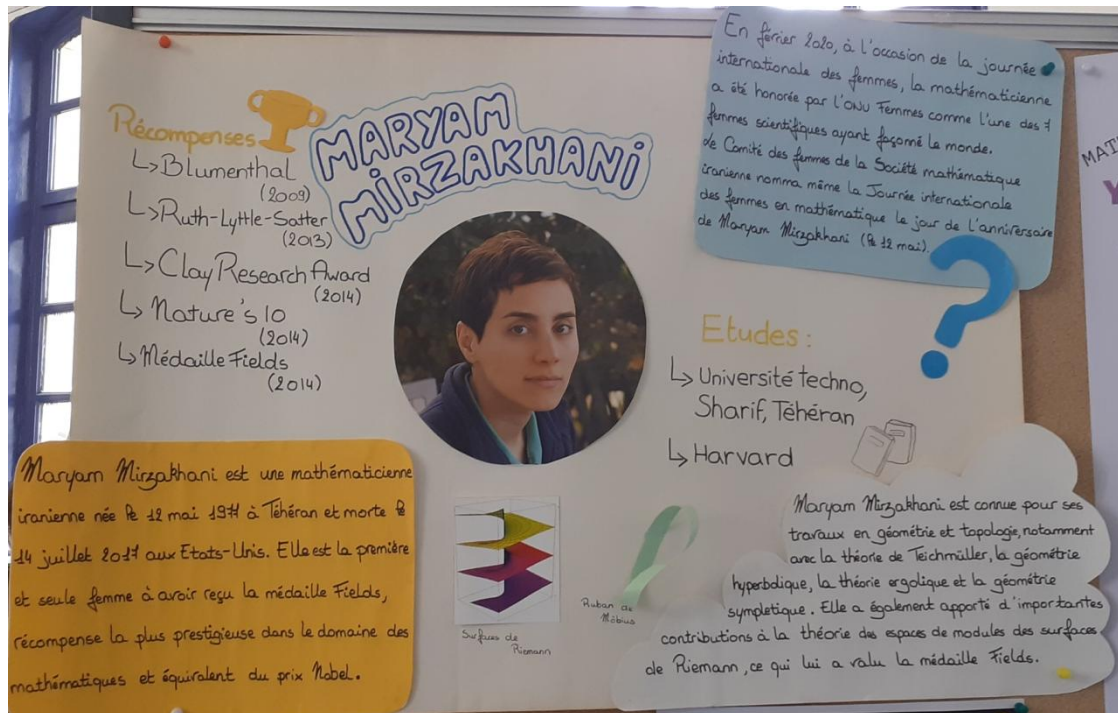 Récompenses
↳ Blumenthal
(2009)
↳ Ruth-Lyttle-Satter
(2013)
↳ Clay Research Award
(2014)
↳ Nature's 10
(2014)
↳ Médaille Fields
(2014)
MARYAM
MIRZAKHANI
En février 2020, à l'occasion de la journée
internationale des femmes, la mathématicienne
a été honorée par l'ONU Femmes comme l'une des 7
femmes scientifiques ayant façonné le monde.
Le Comité des femmes de la Société mathématique
iranienne nomma même la Journée internationale
des femmes en mathématique le jour de l'anniversaire
de Maryam Mirzakhani (le 12 mai).
?
Etudes :
↳ Université techno,
Sharif, Téhéran
↳ Harvard
Maryam Mirzakhani est une mathématicienne
iranienne née le 12 mai 1977 à Téhéran et morte le
14 juillet 2017 aux Etats-Unis. Elle est la première
et seule femme à avoir reçu la médaille Fields,
récompense la plus prestigieuse dans le domaine des
mathématiques et équivalent du prix Nobel.
Surfaces de
Riemann
Ruban de
Möbius
Maryam Mirzakhani est connue pour ses
travaux en géométrie et topologie, notamment
avec la théorie de Teichmüller, la géométrie
hyperbolique, la théorie ergolique et la géométrie
sympletique. Elle a également apporté d'importantes
contributions à la théorie des espaces de modules des surfaces
de Riemann, ce qui lui a valu la médaille Fields.
MAT
Y